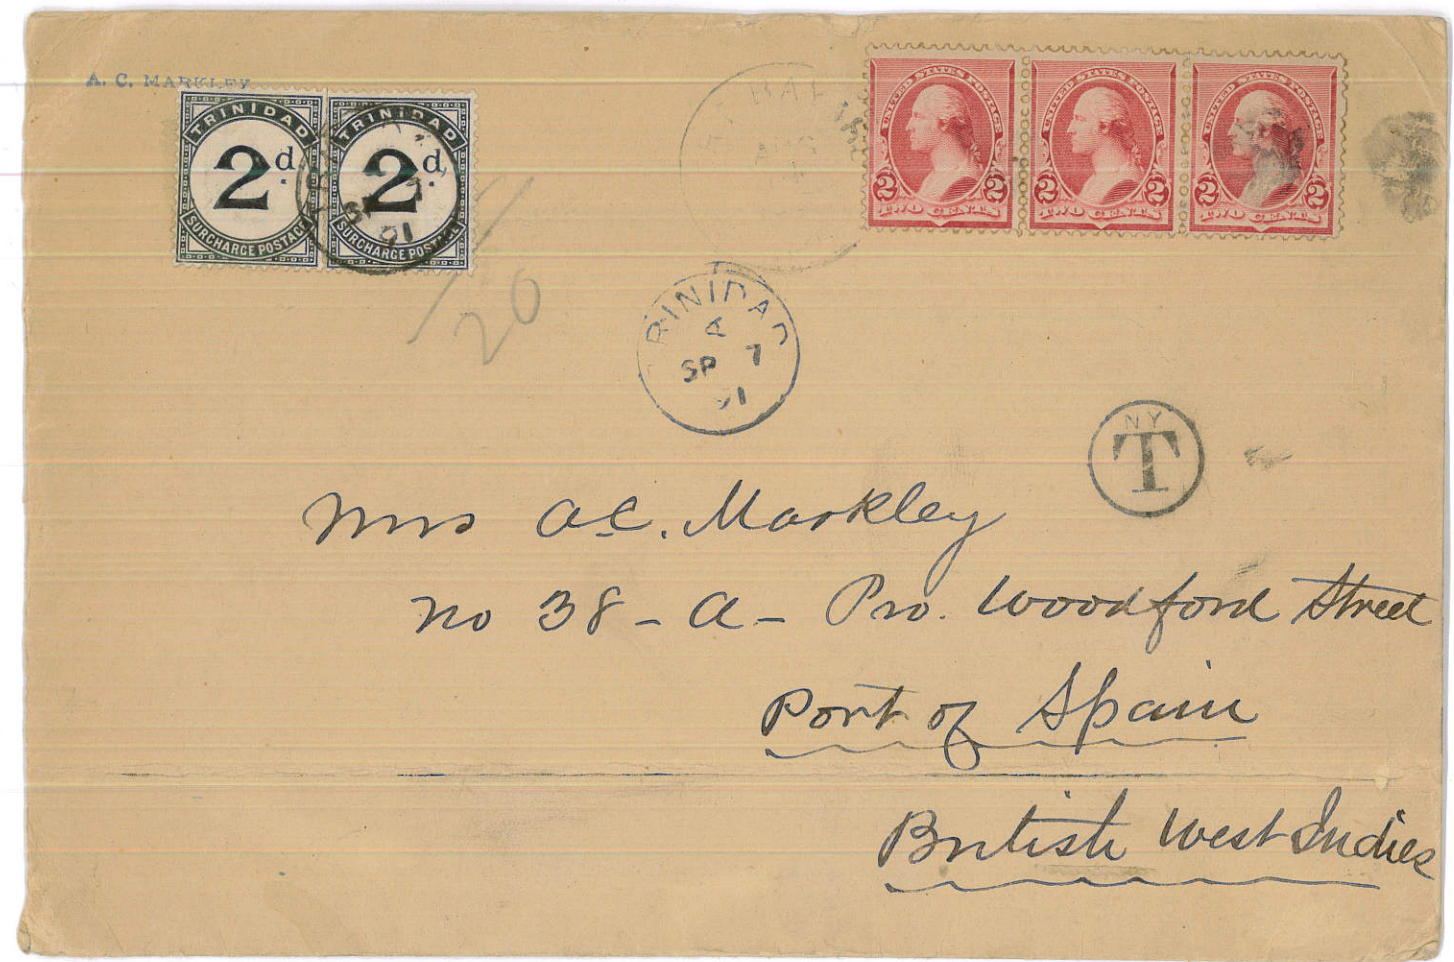 A. C. MARKLEY
TRINIDAD
2d.
SURCHARGE POSTAGE
TRINIDAD
2d.
SURCHARGE POSTAGE
91
UNITED STATES POSTAGE
2 2
TWO CENTS
UNITED STATES POSTAGE
2 2
TWO CENTS
UNITED STATES POSTAGE
2 2
TWO CENTS
20
TRINIDAD
A
SP 7
91
NY
T
Mrs A.C. Markley
No 38-A- Pro. Woodford Street
Port of Spain
British West Indies